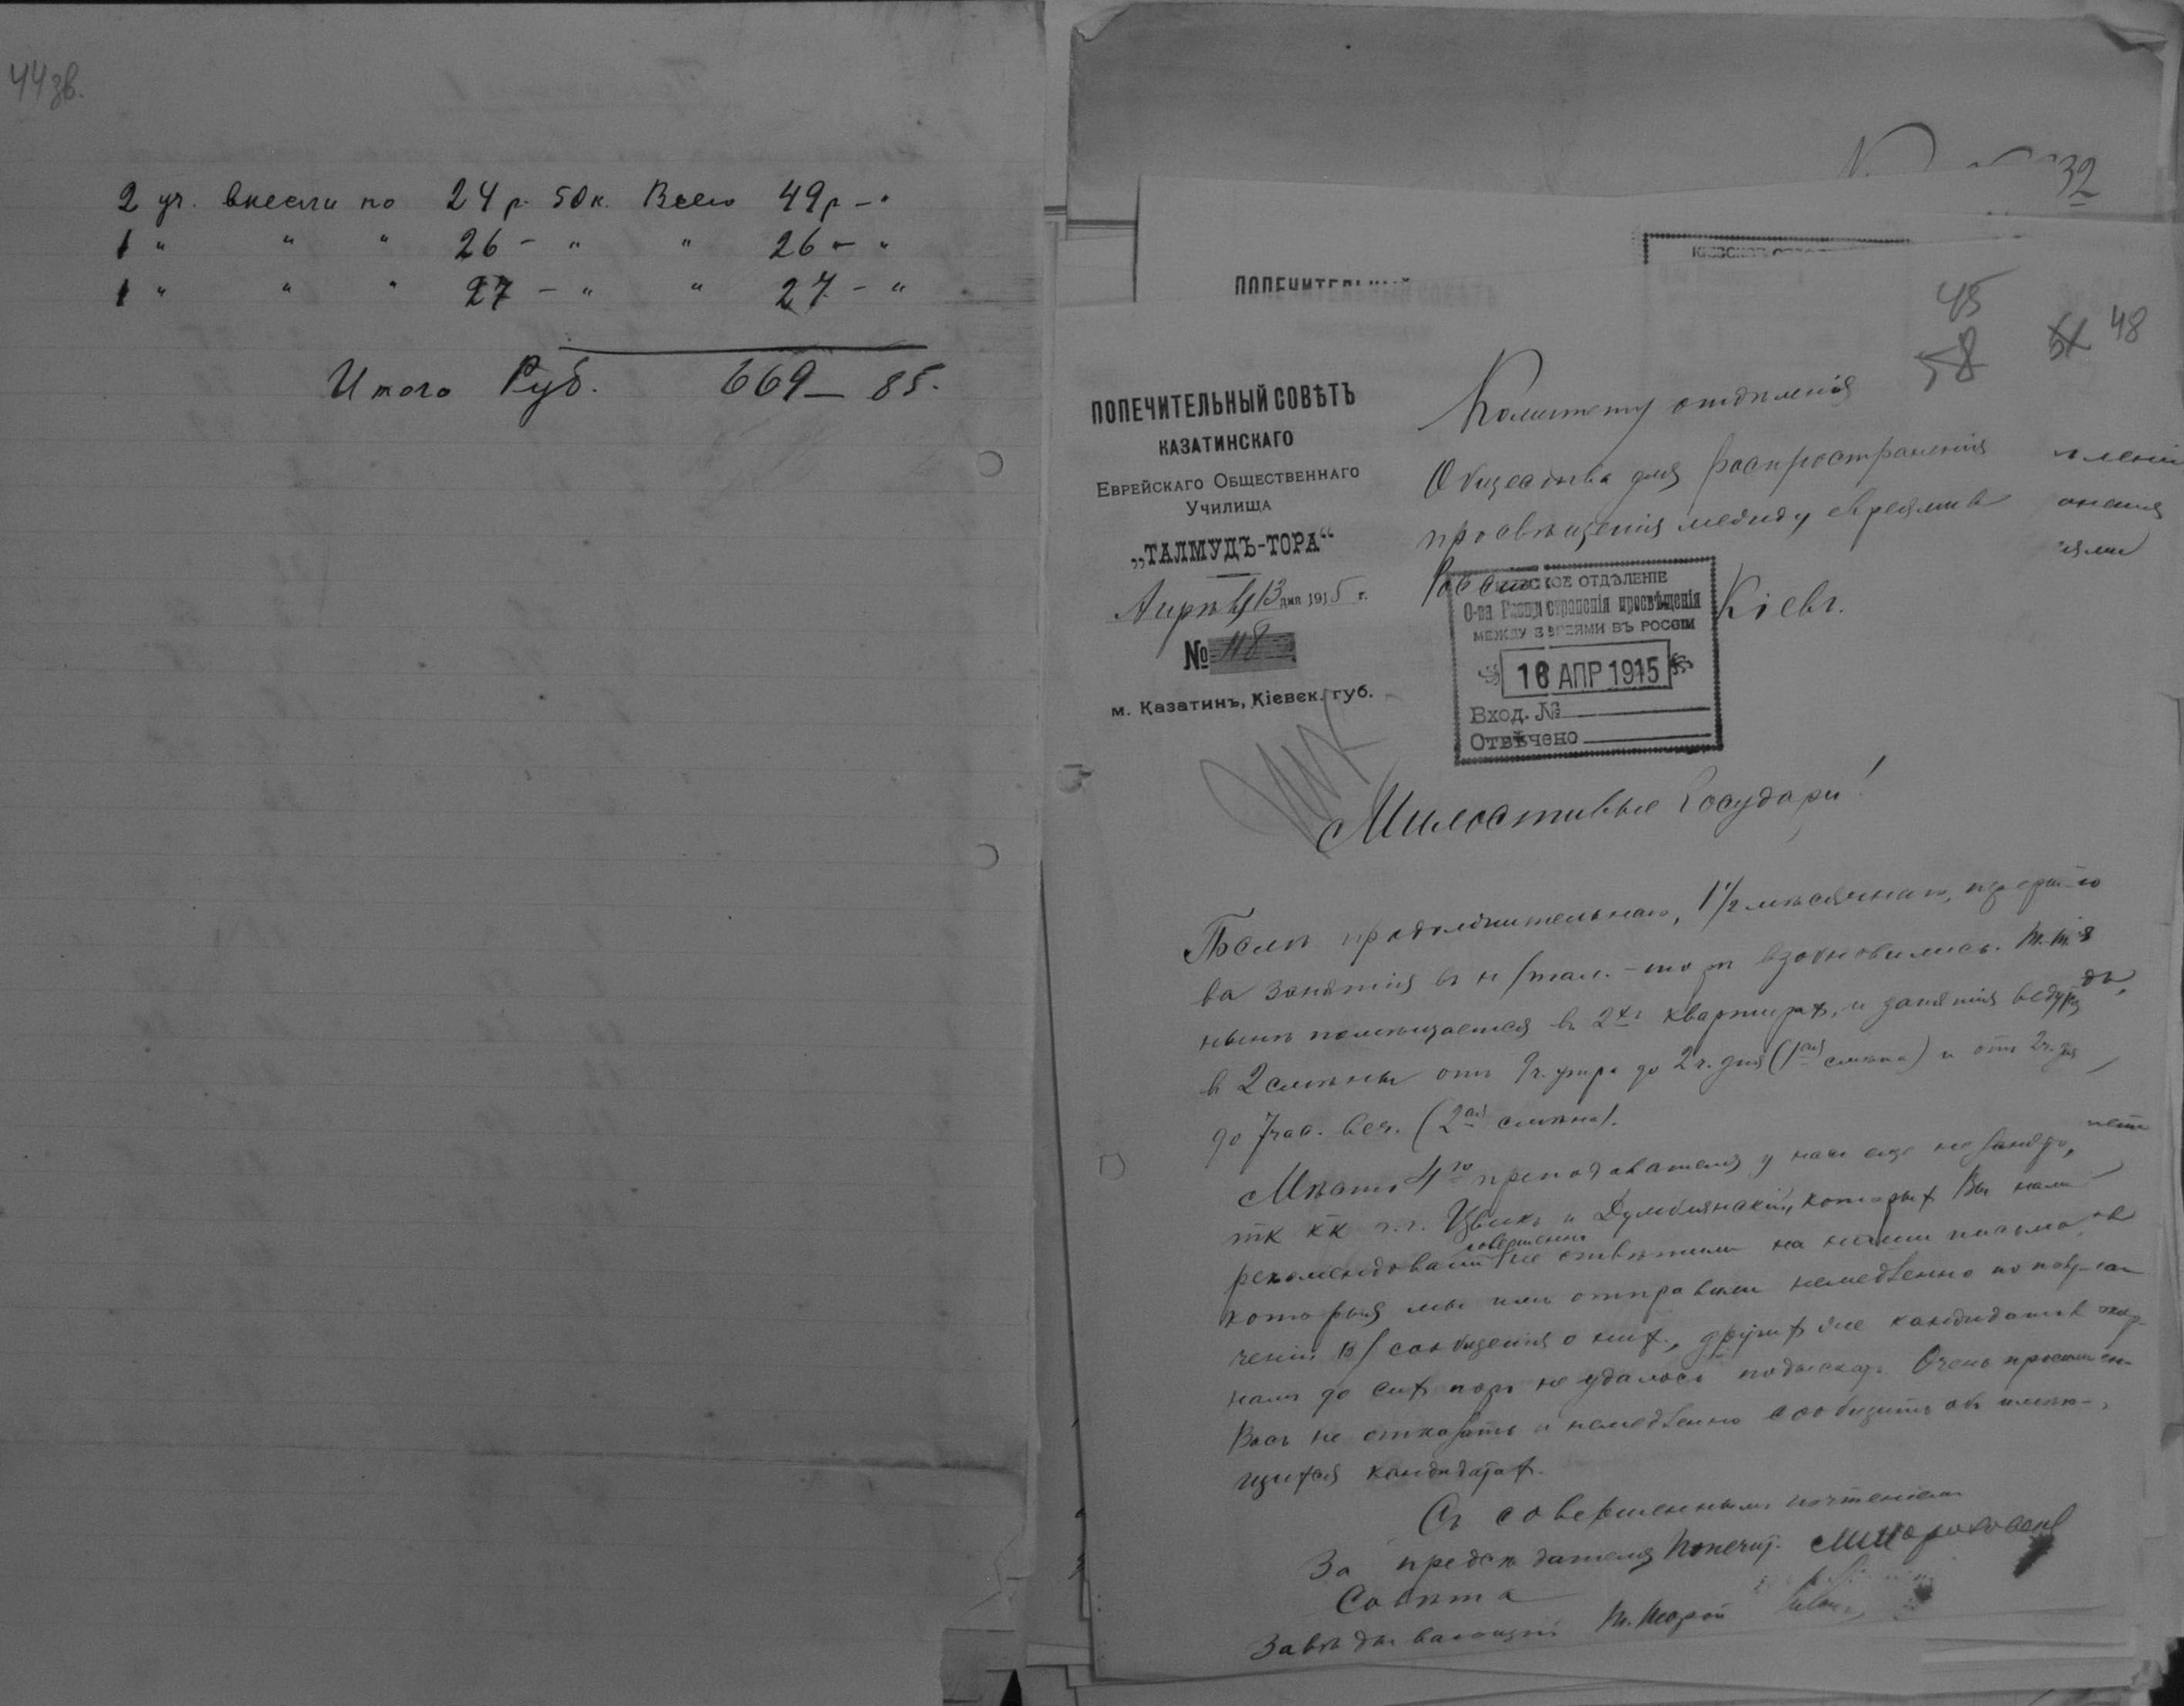 44 зв.
2 уч. внесли по 24 р. 50 к. Всего 49 р - "
1 " " " 26 - " " 26 - "
1 " " " 27 - " " 27 - "
Итого Руб. 669 — 85.
32
ПОПЕЧИТЕЛЬНЫЙ
45
58 48
ПОПЕЧИТЕЛЬНЫЙ СОВѢТЪ
КАЗАТИНСКАГО
ЕВРЕЙСКАГО ОБЩЕСТВЕННАГО
УЧИЛИЩА
„ТАЛМУДЪ-ТОРА“
Апрѣля 13 дня 1915 г.
№ 118
м. Казатинъ, Кіевск. губ.
Комитету отдѣленія
Общества для распространенія
просвѣщенія между евреями въ
Россіи Кіевъ.
КІЕВСКОЕ ОТДѢЛЕНІЕ
О-ва Распространенія просвѣщенія
МЕЖДУ ЕВРЕЯМИ ВЪ РОССІИ
16 АПР 1915
Вход. №
Отвѣчено
Милостивые Государи!
Послѣ продолжительнаго, 1½ мѣсячнаго, перерыва
ва занятія въ н/тал.-торѣ возобновились. Т.-Т.
нынѣ помѣщается въ 2хъ квартирахъ, и занятія ведутся
в 2 смѣны отъ 9 ч. утра до 2 ч. дня (1ая смѣна) и отъ 2 ч. дня
до 7 час. веч. (2ая смѣна).
Мѣсто 4го преподавателя у насъ еще не занято,
тк кк г.г. Цвикъ и которых Вы намъ
рекомендовали совершенно не отвѣтили на наши письма,
которыя мы имъ отправили немедленно по полу-
ченіи В/сообщенія о них, других же кандидатов
намъ до сих поръ не удалось подыскать. Очень просим
Васъ не отказать и немедленно сообщить объ имѣю-
щихся кандидатах.
Съ совершеннымъ почтеніемъ
За предсѣдателя Попечит.
Совѣта
Завѣдывающій Т. Торой